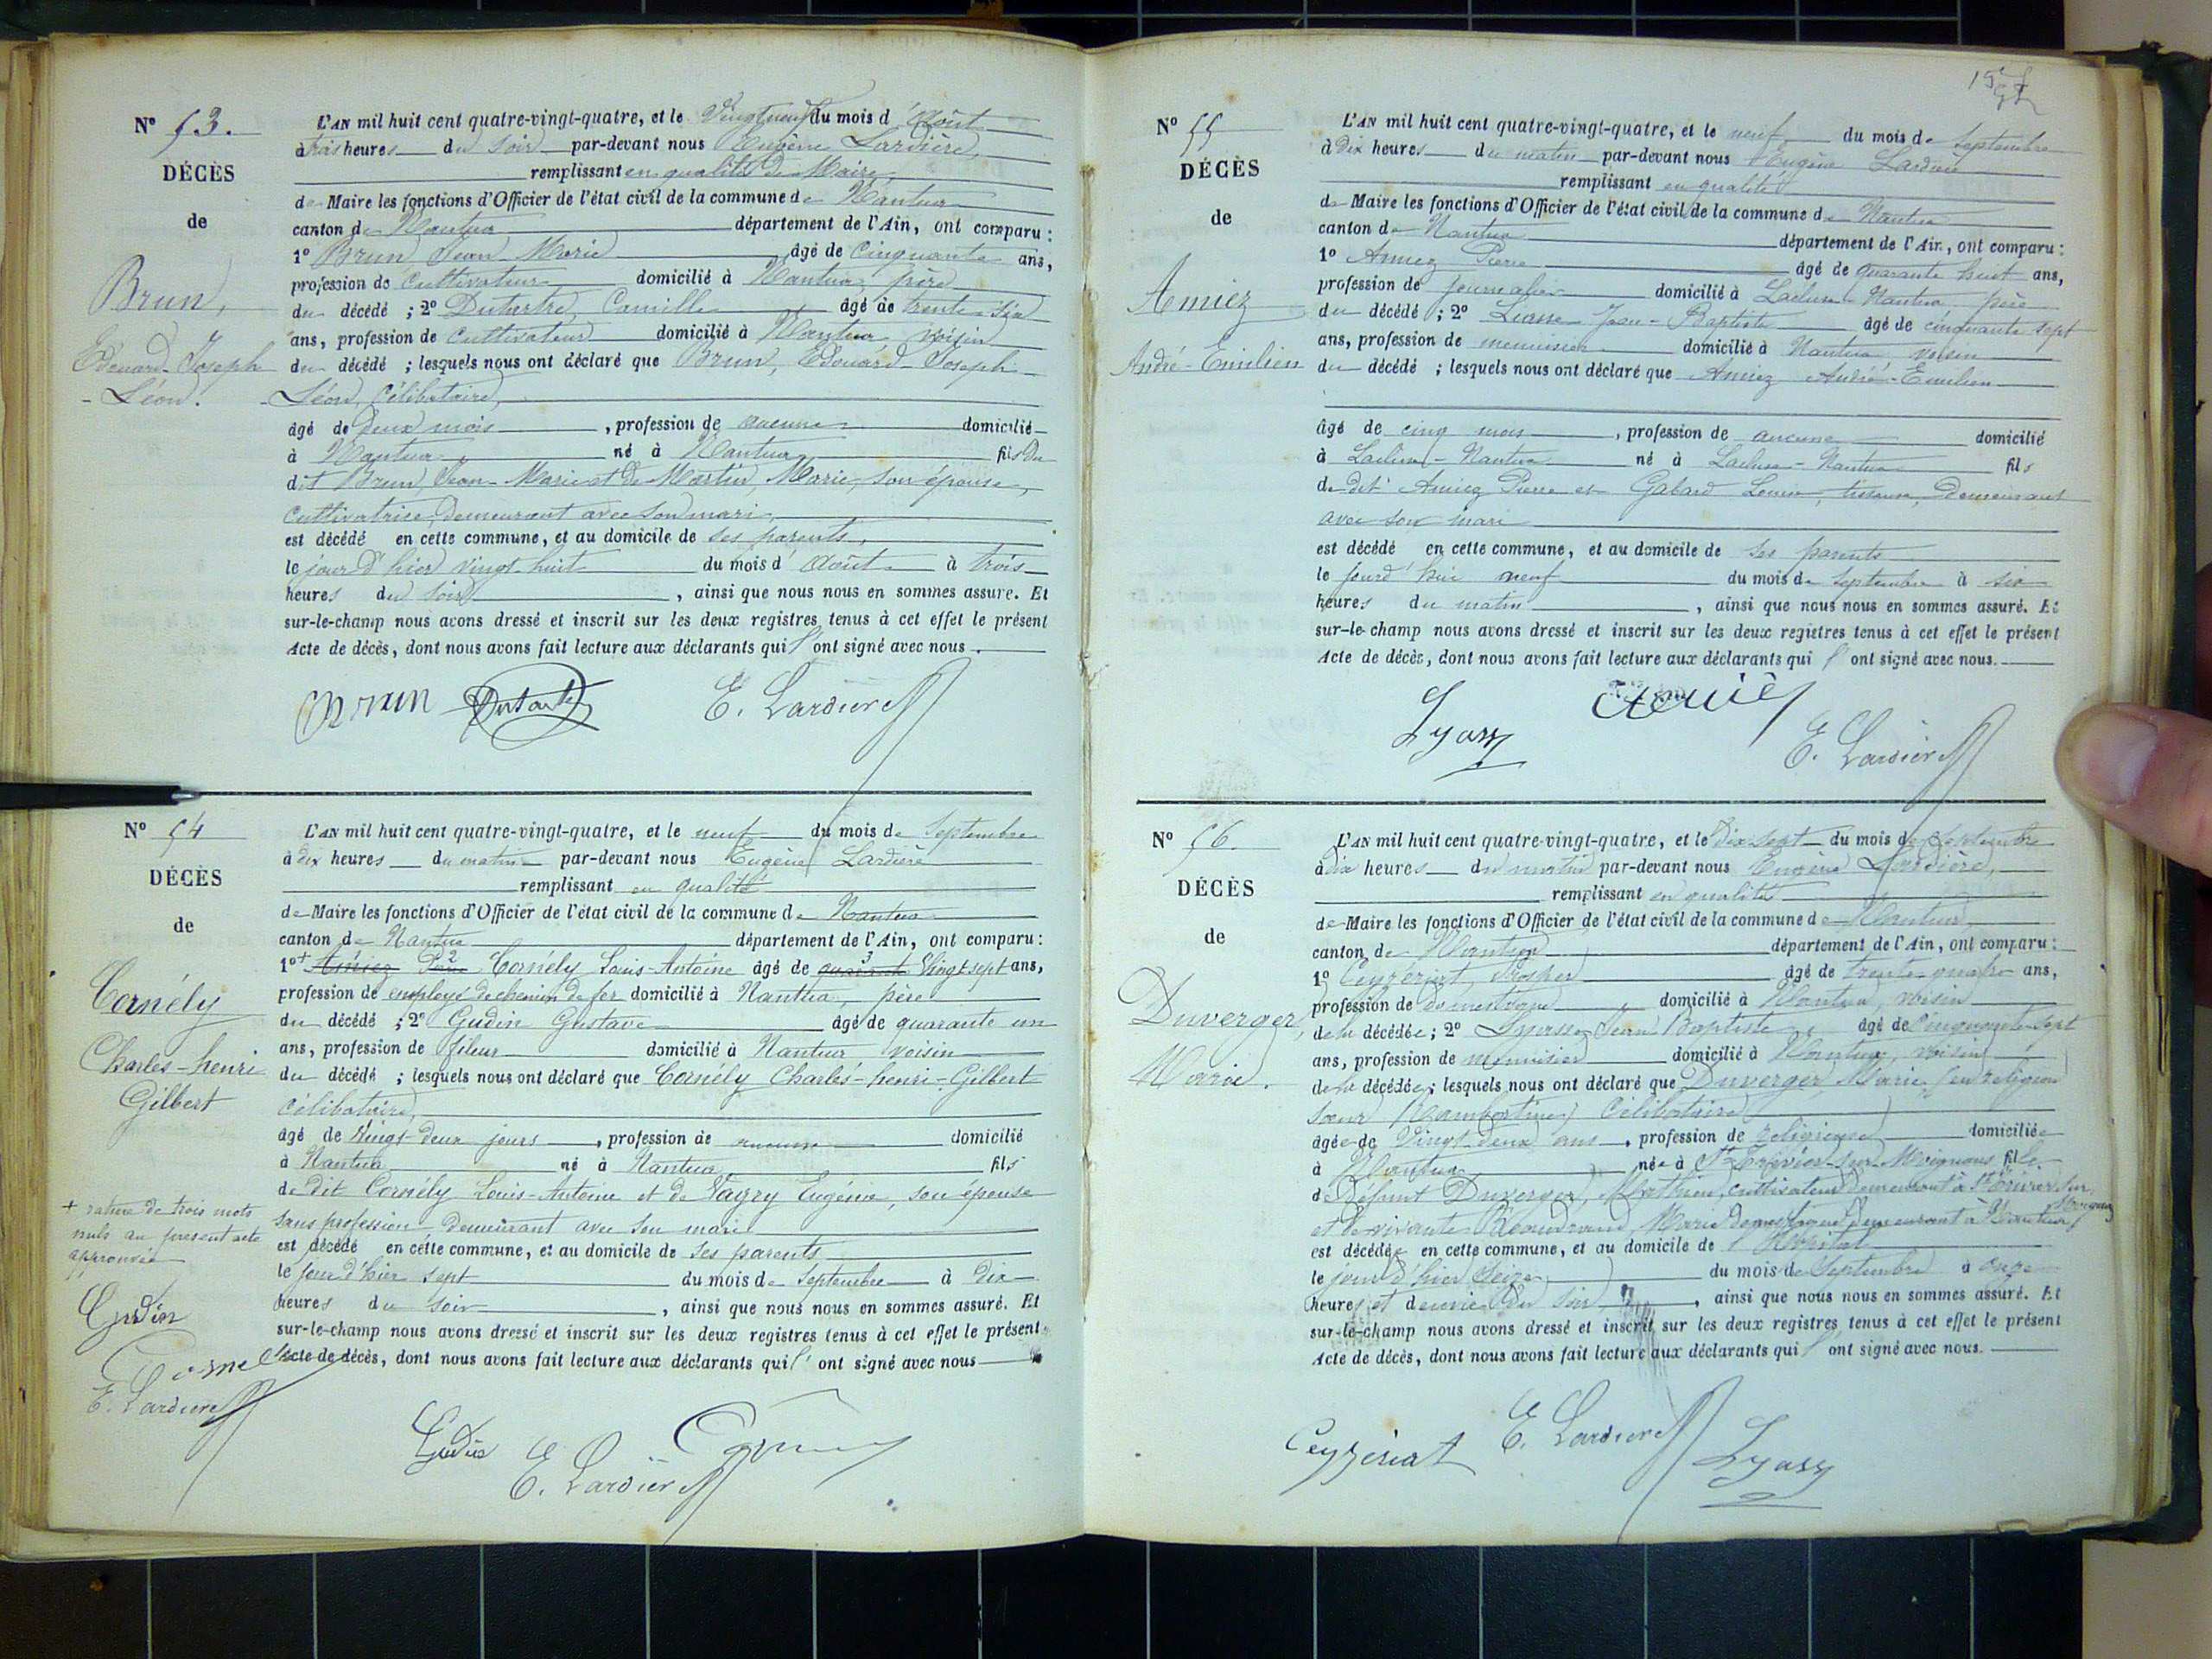 N° 53.
DÉCÈS
de
Brun,
Edouard-Joseph
-Léon.
L'AN mil huit cent quatre-vingt-quatre, et le Vingt neuf du mois d'Août
à trois heures du soir par-devant nous Eugène Lardière,
remplissant en qualité de Maire
de Maire les fonctions d'Officier de l'état civil de la commune de Nantua
canton de Nantua département de l'Ain, ont comparu :
1° Brun Jean Marie âgé de Cinquante ans,
profession de Cultivateur domicilié à Nantua, père
du décédé ; 2° Dutartre, Camille âgé de trente-six
ans, profession de cultivateur domicilié à Nantua, voisin
du décédé ; lesquels nous ont déclaré que Brun, Edouard-Joseph
Léon, Célibataire,
âgé de deux mois, profession de aucune domicilié
à Nantua né à Nantua fils du
dit Brun, Jean-Marie et de Martin, Marie, son épouse,
Cultivatrice, demeurant avec son mari,
est décédé en cette commune, et au domicile de ses parents,
le jour d'hier vingt-huit du mois d'Août à trois
heures du soir, ainsi que nous nous en sommes assuré. Et
sur-le-champ nous avons dressé et inscrit sur les deux registres tenus à cet effet le présent
Acte de décès, dont nous avons fait lecture aux déclarants qui l'ont signé avec nous.
Brun Dutartre E. Lardière
N° 54
DÉCÈS
de
Cornély
Charles-henri
Gilbert
L'AN mil huit cent quatre-vingt-quatre, et le neuf du mois de Septembre
à dix heures du matin par-devant nous Eugène Lardière
remplissant en qualité
de Maire les fonctions d'Officier de l'état civil de la commune de Nantua
canton de Nantua département de l'Ain, ont comparu :
1°+ Amiez Pierre Cornély Louis-Antoine âgé de quarante Vingt sept ans,
profession de employé de chemin de fer domicilié à Nantua, père
du décédé ; 2° Gudin Gustave âgé de quarante un
ans, profession de fileur domicilié à Nantua, voisin
du décédé ; lesquels nous ont déclaré que Cornély Charles-henri-Gilbert
Célibataire,
âgé de Vingt-deux jours, profession de aucune domicilié
à Nantua né à Nantua fils
de dit Cornély Louis-Antoine et de Eugénie, son épouse
sans profession demeurant avec son mari
est décédé en cette commune, et au domicile de ses parents
le jour d'hier sept du mois de Septembre à dix
heures du soir, ainsi que nous nous en sommes assuré. Et
sur-le-champ nous avons dressé et inscrit sur les deux registres tenus à cet effet le présent
Acte de décès, dont nous avons fait lecture aux déclarants qui l'ont signé avec nous
+ rature de trois mots
nuls au present acte
approuvée
Gudin
E. Lardière
Gudin E. Lardière
N° 55
DÉCÈS
de
Amiez
André-Emilien
L'AN mil huit cent quatre-vingt-quatre, et le neuf du mois de Septembre
à dix heures du matin par-devant nous Eugène Lardière
remplissant en qualité
de Maire les fonctions d'Officier de l'état civil de la commune de Nantua
canton de Nantua département de l'Ain, ont comparu :
1° Amiez Pierre âgé de quarante huit ans,
profession de journalier domicilié à Lacluse-Nantua père
du décédé ; 2° Jean-Baptiste âgé de cinquante sept
ans, profession de menuisier domicilié à Nantua, voisin
du décédé ; lesquels nous ont déclaré que Amiez André-Emilien
âgé de cinq mois, profession de aucune domicilié
à Lacluse-Nantua né à Lacluse-Nantua fils
de dit Amiez Pierre et Gabard demeurant
avec son mari
est décédé en cette commune, et au domicile de ses parents
le jourd'hui neuf du mois de Septembre à six
heures du matin, ainsi que nous nous en sommes assuré. Et
sur-le-champ nous avons dressé et inscrit sur les deux registres tenus à cet effet le présent
Acte de décès, dont nous avons fait lecture aux déclarants qui l'ont signé avec nous.
Lyass Amiez
E. Lardière
N° 56.
DÉCÈS
de
Duverger,
Marie.
L'AN mil huit cent quatre-vingt-quatre, et le Dix sept du mois de Septembre
à dix heures du matin par-devant nous Eugène Lardière,
remplissant en qualité
de Maire les fonctions d'Officier de l'état civil de la commune de Nantua
canton de Nantua département de l'Ain, ont comparu :
1° Ceyzeriat, Prosper âgé de trente-quatre ans,
profession de domestique, domicilié à Nantua, voisin
de la décédée ; 2° Jean Baptiste, âgé de Cinquante-sept
ans, profession de menuisier domicilié à Nantua, voisin
de la décédée ; lesquels nous ont déclaré que Duverger, Marie, (en religion
soeur Célibataire
âgée de Vingt-deux ans, profession de religieuse domiciliée
à Nantua née à St Trivier-sur-Moignans fille
de Défunt Duverger, Mathieu, cultivateur demeurant à St Trivier sur
Moignans
et de vivante Marie domestique demeurant à Nantua
est décédée en cette commune, et au domicile de l'Hôpital
le jour d'hier Seize du mois de Septembre à onze
heures et demie du soir, ainsi que nous nous en sommes assuré. Et
sur-le-champ nous avons dressé et inscrit sur les deux registres tenus à cet effet le présent
Acte de décès, dont nous avons fait lecture aux déclarants qui l'ont signé avec nous.
Ceyzériat E. Lardière Lyass